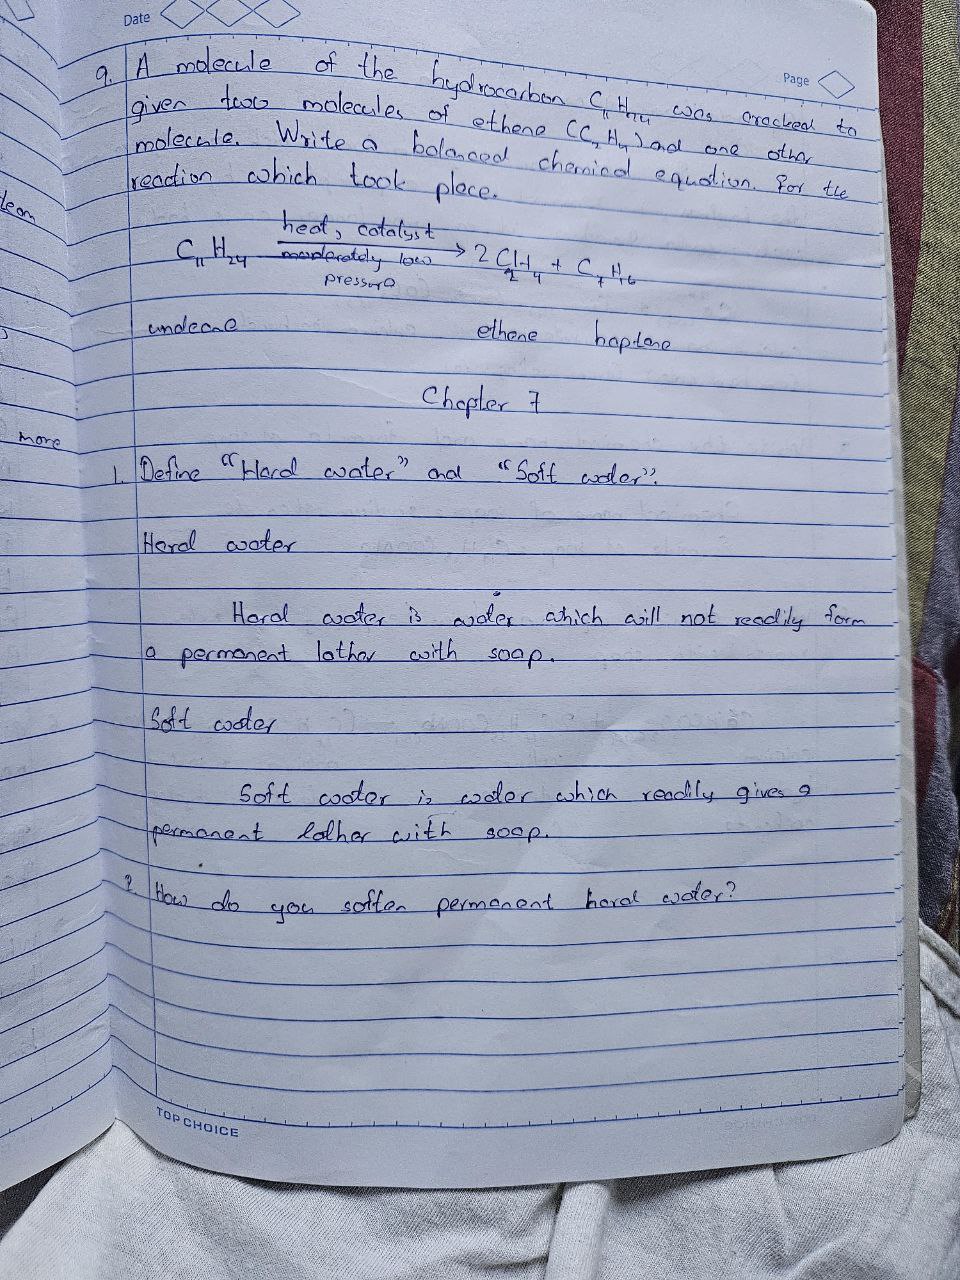 Date
Page
9. A molecule of the hydrocarbon C11 H24 was cracked to
given two molecules of ethene (C2 H4) and one other
molecule. Write a balanced chemical equation. For the
reaction which took place.
heat, catalyst
C11 H24 → 2 C2H4 + C7 H16
moderately low
pressure
undecne ethene heptane
Chapter 7
more
1. Define "Hard water" and "Soft water".
Hard water
Hard water is water which will not readily form
a permanent lather with soap.
Soft water
Soft water is water which readily gives a
permanent lather with soap.
2. How do you soften permanent hard water?
TOP CHOICE